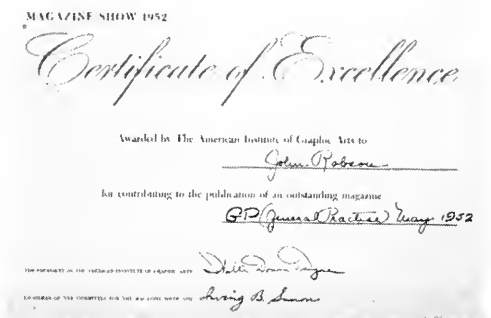 MAGAZINE SHOW 1952
Certificate of Excellence
Awarded by The American Institute of Graphic Arts to
John Robson
for contributing to the publication of an outstanding magazine
GP (General Practise) May 1952
THE PRESIDENT OF THE AMERICAN INSTITUTE OF GRAPHIC ARTS
CHAIRMAN OF THE COMMITTEE FOR THE MAGAZINE SHOW 1952 Irving B. Simon